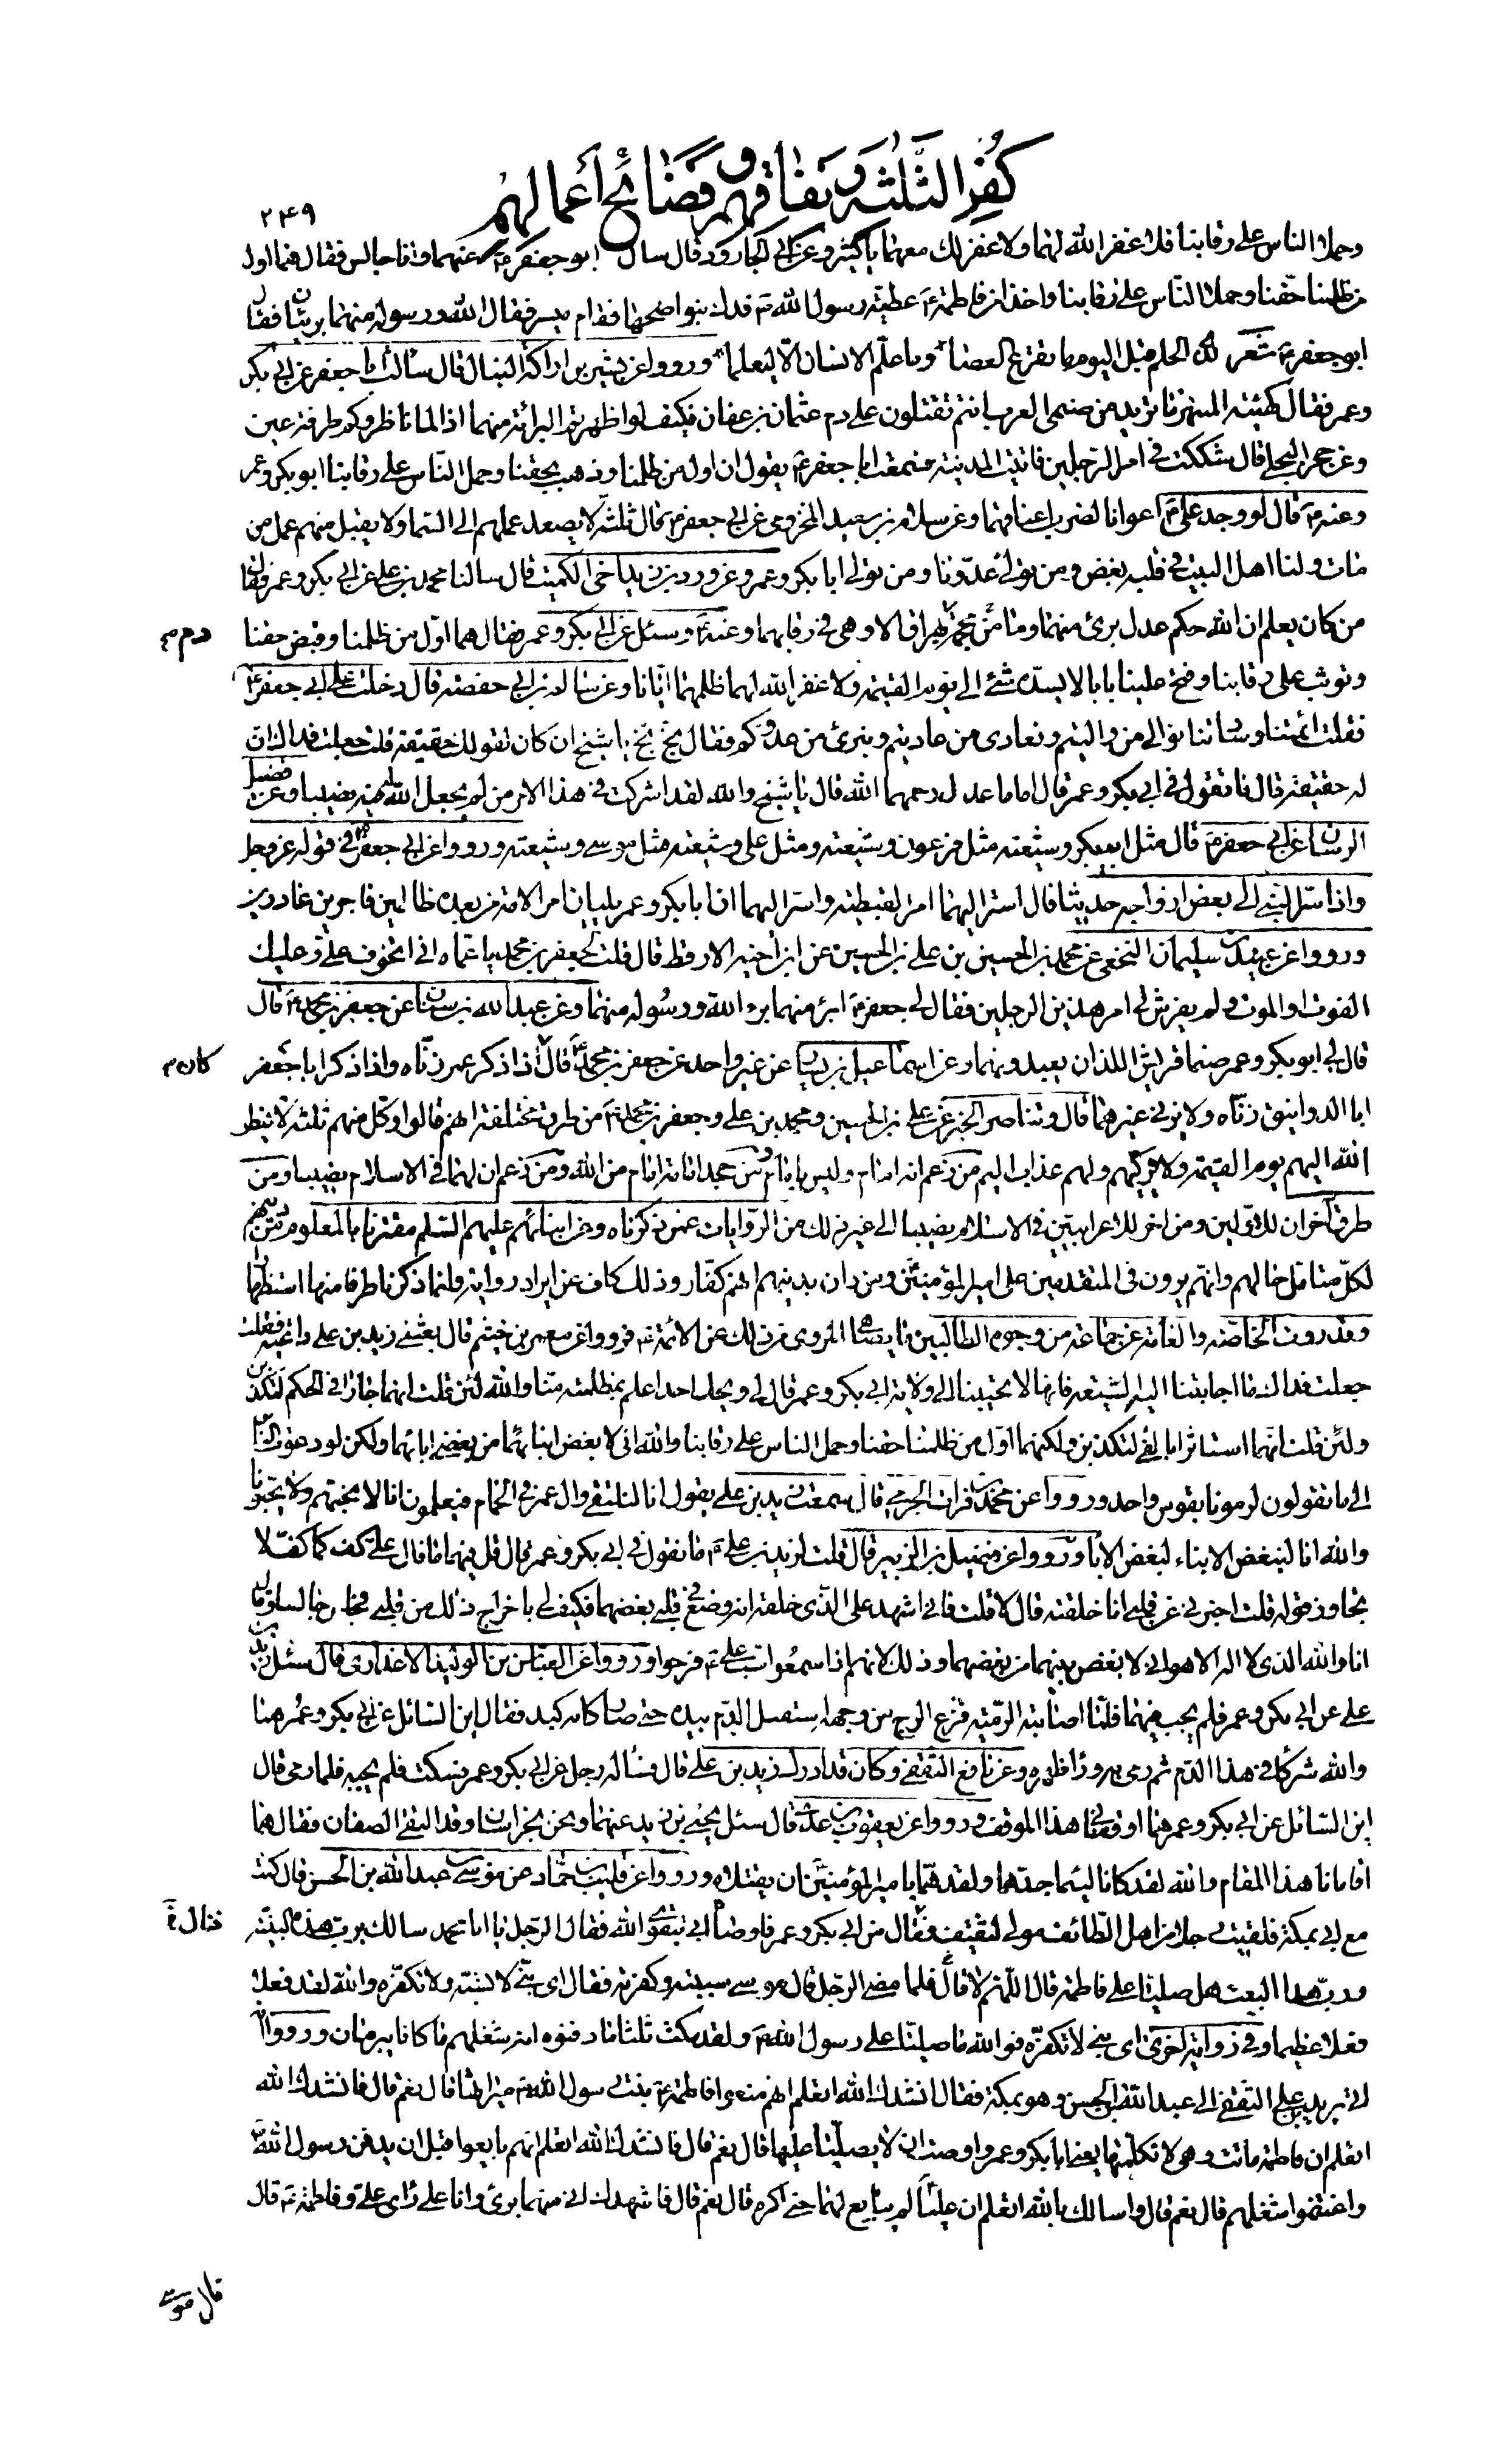 كفر الثلثة و نفاقهم و فضائح أعمالهم
۲۴۹
وحملا الناس على رقابنا فلا غفر الله لهما ولا غفر لك معهما يا كثير وعن ابى الجارود قال سال ابو جعفر ع عنهما وانا جالس فقال هما اول
من ظلمنا حقنا وحملا الناس على رقابنا واخذا من فاطمة ع عطية رسول الله ص فدك بنواضحها فقام ميسر فقال الله ورسوله منهما بريئان فقال
ابو جعفر ع شعر لذى الحلم قبل اليوم ما يقرع العصا * وما علم الانسان الا ليعلما * ورووا عن بشير بن اراكة النبال قال سالت ابا جعفر عن ابى بكر
وعمر فقال كهيئة المنتهر ما تريد من صنمى العرب انتم تقتلون على دم عثمان بن عفان فكيف لو اظهرتم البرائة منهما اذا لما ناظروكم طرفة عين
وعن حجر البجلى قال شككت فى امر الرجلين فاتيت المدينة فسمعت ابا جعفر ع يقول ان اول من ظلمنا وذهب بحقنا وحمل الناس على رقابنا ابو بكر وعمر
وعنه ع قال لو وجد على ع اعوانا لضرب اعناقهما وعن سلام بن سعيد المخزومى عن ابى جعفر ع قال ثلثة لا يصعد عملهم الى السما ولا يقبل منهم عمل من
مات ولنا اهل البيت فى قلبه بغض ومن تولى عدونا ومن تولى ابا بكر وعمر وعن ورد بن زيد اخى الكميت قال سالنا محمد بن على عن ابى بكر وعمر فقال
من كان يعلم ان الله حكم عدل برئ منهما وما من محجمة دم يهراق الا وهى فى رقابهما وعنه ع وسئل عن ابى بكر وعمر فقال هما اول من ظلمنا وقبض حقنا
وتوثب على رقابنا وفتح علينا بابا لا يسده شئ الى يوم القيمة ولا غفر الله لهما ظلمهما ايانا وعن سالم بن ابى حفصة قال دخلت على ابى جعفر ع
فقلت ائمتنا وساداتنا نوالى من واليتم ونعادى من عاديتم ونبرئ من عدوكم فقال بخ بخ يا شيخ ان كان لقولك حقيقة قلت جعلت فداك ان
له حقيقة قال ما تقول فى ابى بكر وعمر قال اماما عدل رحمهما الله قال يا شيخ والله لقد اشركت فى هذا الامر من لم يجعل الله له فيه نصيبا وعن فضيل
الرسان عن ابى جعفر ع قال مثل ابى بكر وشيعته مثل فرعون وشيعته ومثل على وشيعته مثل موسى وشيعته ورووا عن ابى جعفر ع فى قوله عز وجل
واذ اسر النبى الى بعض ازواجه حديثا قال اسر اليهما امر القبطية واسر اليهما ان ابا بكر وعمر يليان امر الامة من بعده ظالمين فاجرين غادرين
ورووا عن عبيد بن سليمان النخعى عن محمد بن الحسين بن على بن الحسين عن ابن اخيه الارقط قال قلت لجعفر بن محمد يا عماه انى اتخوف على وعليك
الفوت او الموت ولم يفرش لى امر هذين الرجلين فقال لى جعفر ع ابرئ منهما برء الله ورسوله منهما وعن عبد الله بن سنان عن جعفر بن محمد ع قال
قال لى ابو بكر وعمر صنما قريش اللذان يعبدونهما وعن اسماعيل بن يسار عن غير واحد عن جعفر بن محمد ع قال كان اذا ذكر عمر زناه واذا ذكر ابا جعفر
ابا الدوانيق زناه ولا يزنى غيرهما قال وتناصر الخبر عن على بن الحسين ومحمد بن على وجعفر بن محمد ع من طرق مختلفة انهم قالوا وكل منهم ثلثة لا ينظر
الله اليهم يوم القيمة ولا يزكيهم ولهم عذاب اليم من زعم انه امام وليس بامام ومن جحد امامة امام من الله ومن زعم ان لهما فى الاسلام نصيبا ومن
طرق اخر ان للاولين ومن اخر للاعرابيين فى الاسلام نصيبا الى غير ذلك من الروايات عمن ذكرناه وعن ابنائهم عليهم السلم مقترنا بالمعلوم من دينهم
لكل متامل حالهم وانهم يرون فى المتقدمين على امير المؤمنين ومن دان بدينهم انهم كفار وذلك كاف عن ايراد رواية وانما ذكرنا طرفا منها استظهارا
وقد روت الخاصة والعامة عن جماعة من وجوه الطالبيين ما يضاهى المروى من ذلك عن الائمة ع فرووا عن معمر بن خيثم قال بعثنى زيد بن على داعية فقلت
جعلت فداك ما اجابتنا اليه الشيعة فانها لا تجيبنا الى ولاية ابى بكر وعمر قال لى ويحك احد اعلم بمظلمته منا والله لئن قلت انهما جارا فى الحكم لتكذبن
ولئن قلت انهما استاثرا بالفئ لتكذبن ولكنهما اول من ظلمنا حقنا وحمل الناس على رقابنا والله انى لابغض ابنائهما من بغضى ابائهما ولكن لو دعوت الناس
الى ما تقولون لرمونا بقوس واحد ورووا عن محمد بن فرات الجرمى قال سمعت زيد بن على يقول انا لنلتقى وال عمر فى الحمام فيعلمون انا لا نحبهم ولا يحبونا
والله انا لنبغض الابناء لبغض الابا ورووا عن فضيل بن الزبير قال قلت لزيد بن على ع ما تقول فى ابى بكر وعمر قال قل فيهما ما قال على كف كما كف لا
تجاوز قوله قلت اخبرنى عن قلبى انا خلقته قال لا قلت فانى اشهد على الذى خلقه انه وضع فى قلبى بغضهما فكيف لى باخراج ذلك من قلبى فجلس جالسا وقال
انا والله الذى لا اله الا هو انى لابغض بنيهما من بغضهما وذلك لانهم اذا سمعوا سب على ع فرحوا ورووا عن العباس بن الوليد الاغدارى قال سئل زيد بن
على عن ابى بكر وعمر فلم يجب فيهما فلما اصابته الرمية فنزع الرمح من وجهه استقبل الدم بيده حتى صار كانه كبد فقال اين السائل عن ابى بكر وعمر هما
والله شركاء فى هذا الدم ثم رمى به وراء ظهره وعن نافع الثقفى وكان قد ادرك زيد بن على قال فساله رجل عن ابى بكر وعمر فسكت فلم يجبه فلما رمى قال
اين السائل عن ابى بكر وعمر هما اوقفانى هذا الموقف ورووا عن يعقوب بن عدى قال سئل يحيى بن زيد عنهما ونحن بخراسان وقد التقى الصفان فقال هما
اقامانا هذا المقام والله لقد كانا لئيما جدهما ولقد هما بامير المؤمنين ان يقتلاه ورووا عن قليب بن حماد عن موسى بن عبد الله بن الحسن قال كنت
مع ابى بمكة فلقيت رجلا من اهل الطائف مولى لثقيف فنال من ابى بكر وعمر فاوصاه ابى بتقوى الله فقال الرجل يا ابا محمد سالك برب هذه البنية
ورب هذا البيت هل صليا على فاطمة قال اللهم لا قال فلما مضى الرجل قال موسى سببته وكفرته فقال اى بنى لا تسبه ولا تكفره والله لقد فعلا
فعلا عظيما وفى رواية اخرى اى بنى لا تكفره فوالله ما صليا على رسول الله ص ولقد مكث ثلثا ما دفنوه انه شغلهم ما كانا يبرمان ورووا انه
اتى يزيد بن على الثقفى الى عبد الله بن الحسن وهو بمكة فقال انشدك الله اتعلم انهم منعوا فاطمة ع بنت رسول الله ص ميراثها قال نعم قال فانشدك الله
اتعلم ان فاطمة ماتت وهى لا تكلمهما يعنى ابا بكر وعمر واوصت ان لا يصليا عليها قال نعم قال فانشدك الله اتعلم انهم بايعوا قبل ان يدفن رسول الله ص
واغتنموا شغلهم قال نعم قال واسالك بالله اتعلم ان عليا لم يبايع لهما حتى اكره قال نعم قال فاشهدك انى منهما برئ وانا على راى على وفاطمة ع قال
قال موسى